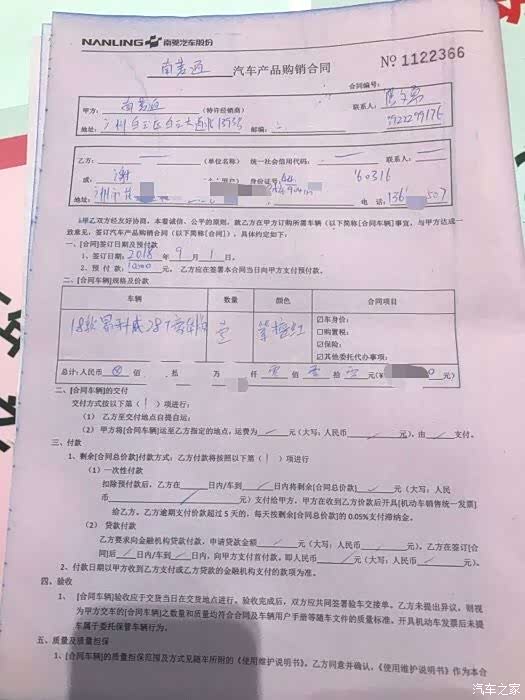 NANLING 南菱汽车股份
南菱通 汽车产品购销合同 № 1122366
合同编号:
甲方: 南菱通 (特许经销商) 联系人:
地址: 广州白云区白云大道北1373号 邮编:
乙方: (单位名称) 统一社会信用代码: 联系人:
或: 谢 身份证号 60316
地址: 电话: 136 507
甲乙双方经友好协商,本着诚信、公平的原则,就乙方在甲方订购所需车辆(以下简称[合同车辆])事宜,与甲方达成一
致意见,签订汽车产品购销合同(以下简称[合同]),具体约定如下:
一、[合同]签订日期及预付款
1、签订日期: 2018 年 9 月 1 日。
2、预 付 款: 元。 乙方应在签署本合同当日向甲方支付预付款。
二、[合同车辆]规格及价款
车辆 数量 颜色 合同项目
18款昂科威28T豪华 壹 红
☑车身价:
☐购置税:
☑保险:
☑其他委托代办事项:
总计:人民币 ⊗ 佰 拾 万 仟 壹 佰 壹 拾 壹 元(¥ 0 元)
二、[合同车辆]的交付
交付方式按以下第( 1 )项进行:
(1) 乙方至交付地点自提自运;
(2) 甲方将[合同车辆]运至乙方指定的地点,运费为 元(大写:人民币 元),由 支付。
三、付款
1、剩余[合同总价款]付款方式:乙方付款将按照以下第( 1 )项进行
(1)一次性付款
扣除预付款后,乙方在 日内/车到 日内将剩余[合同总价款] 元(大写:人民
币 元)支付给甲方。甲方在收到乙方价款后开具[机动车销售统一发票]
给乙方。乙方逾期支付价款超过 5 天的,每天按剩余[合同总价款]的 0.05%支付滞纳金。
(2) 贷款付款
乙方要求向金融机构付款,申请贷款金额 元(大写:人民币 元)。乙方在签订[合
同]后 日内/车到 日内,向甲方支付首付款,即人民币 元(大写:人民币 元)。
2、付款日期以甲方收到乙方支付或乙方贷款的金融机构支付的款项为准。
四、验收
1、 [合同车辆]验收应于交货当日在交货地点进行。验收完成后,双方应共同签署验车交接单。乙方未提出异议,则视
为甲方交车的[合同车辆]之数量和质量均符合合同及车辆用户手册等随车文件的质量标准。开具机动车发票后未提
车属于委托保管车辆行为。
五、质量及质量担保
1、[合同车辆]的质量担保范围及方式见随车所附的《使用维护说明书》。乙方同意并确认,《使用维护说明书》作为本合
汽车之家